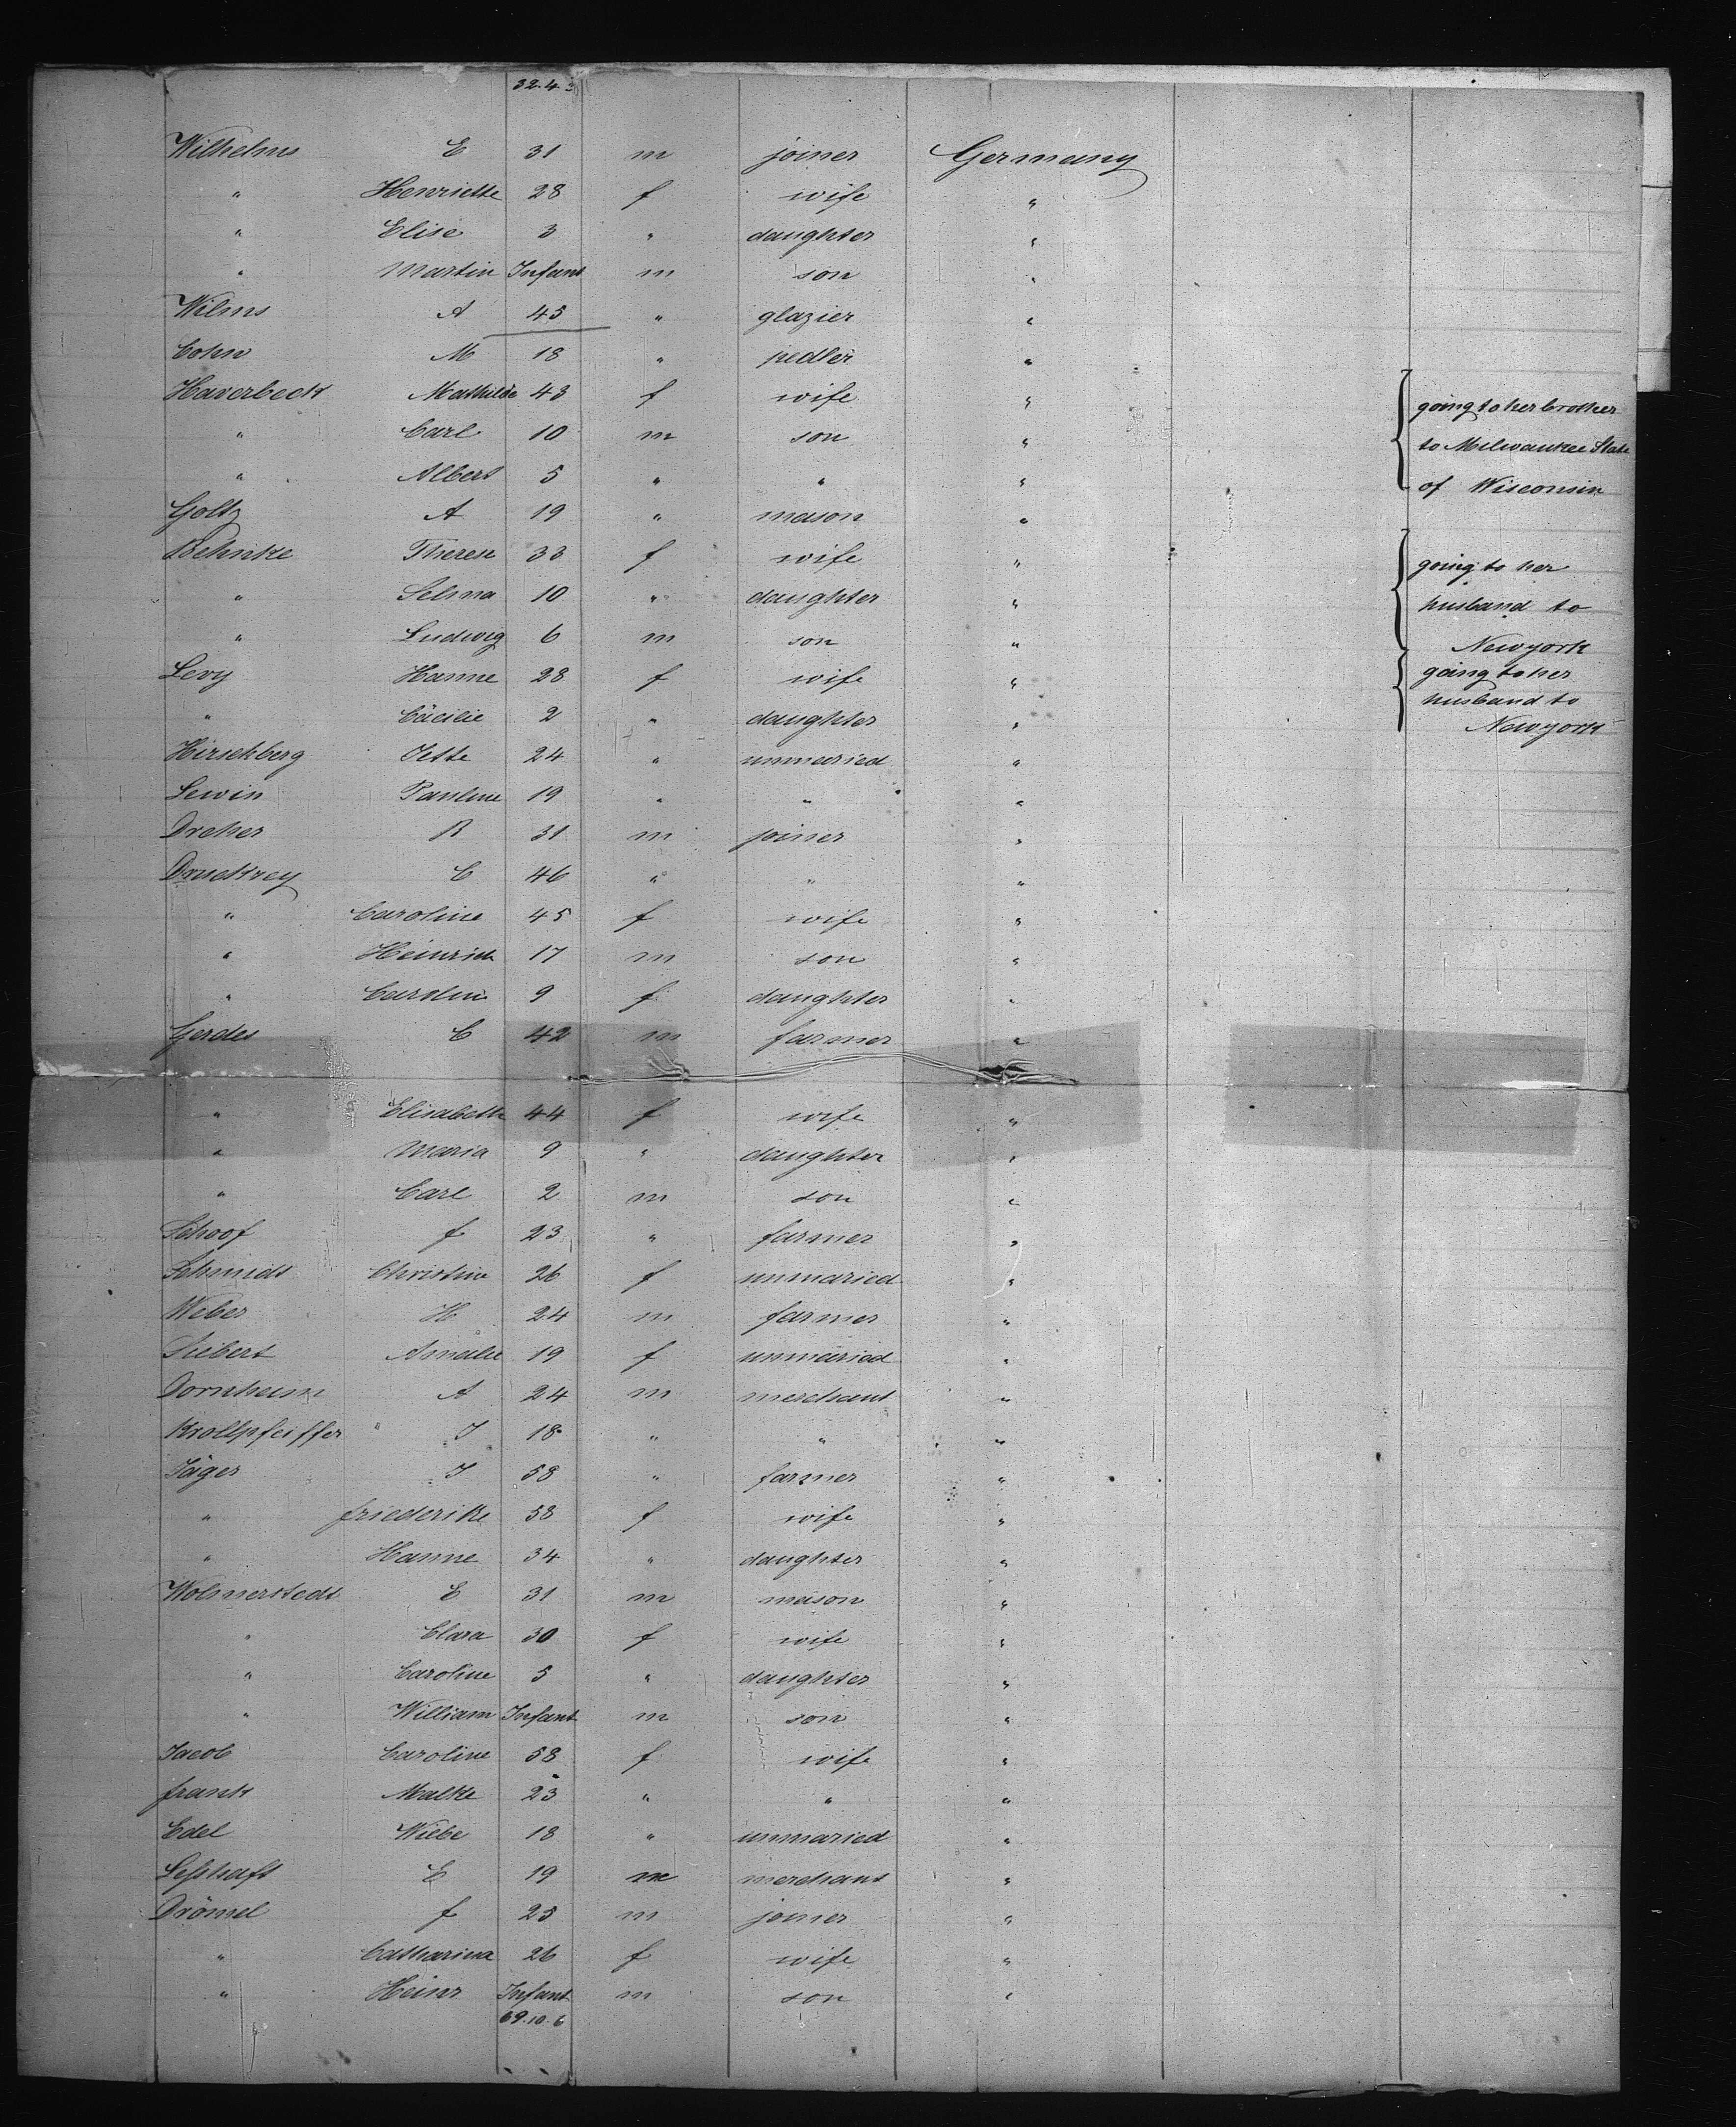 32.4.3
Wilhelms E 31 m joiner Germany
" Henriette 28 f wife "
" Elise 3 " daughter "
" Martin Infant m son "
Wilms A 45 " glazier "
Cohn M 18 " pedler "
Haverbeck Mathilde 43 f wife " going to her brother
" Carl 10 m son " to Milwaukee State
" Albert 5 " " " of Wisconsin
Goltz A 19 " mason "
Behnke Therese 33 f wife " going to her
" Selma 10 " daughter " husband to
" Ludwig 6 m son " Newyork
Levy Hanne 28 f wife " going to her
husband to
" Cäcilie 2 " daughter " Newyork
Hirschberg Jette 24 " unmaried "
Lewin Pauline 19 " " "
Dreher R 31 m joiner "
Druckrey C 46 " " "
" Caroline 45 f wife "
" Heinrich 17 m son "
" Carolin 9 f daughter "
Gerdes C 42 m farmer "
" Elisabeth 44 f wife "
" Maria 9 " daughter "
" Carl 2 m son "
Schoof f 23 " farmer "
Schmidt Christine 26 f unmaried "
Weber H 24 m farmer "
Siebert Amalie 19 f unmaried "
Dornheim A 24 m merchant "
Krollpfeiffer " J 18 " " "
Jäger J 58 " farmer "
" friederike 58 f wife "
" Hanne 34 " daughter "
Wolmerstedt E 31 m mason "
" Clara 30 f wife "
" Caroline 5 " daughter "
" William Infant m son "
Jacob Caroline 58 f wife "
frank Malke 23 " " "
Edel Wiebe 18 " unmaried "
Leßhaft E 19 m merchant "
Drömel f 25 m joiner "
" Catharina 26 f wife "
" Heinr Infant m son "
69.10.6